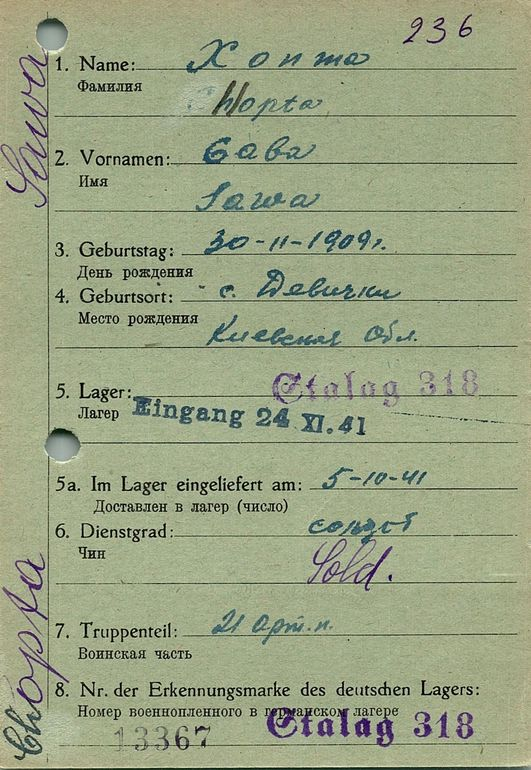 236
1. Name: Хопта
Фамилия
Chopta
2. Vornamen: Сава
Имя
Sawa
3. Geburtstag: 30-11-1909г.
День рождения
4. Geburtsort: с. Девички
Место рождения
Киевская Обл.
5. Lager: Stalag 318
Лагер
Eingang 24 XI. 41
5a. Im Lager eingeliefert am: 5-10-41
Доставлен в лагер (число)
6. Dienstgrad: солдат
Чин
Sold.
7. Truppenteil: 21 арт. п.
Воинская часть
8. Nr. der Erkennungsmarke des deutschen Lagers:
Номер военнопленного в германском лагере
13367 Stalag 318
Chopta Sawa